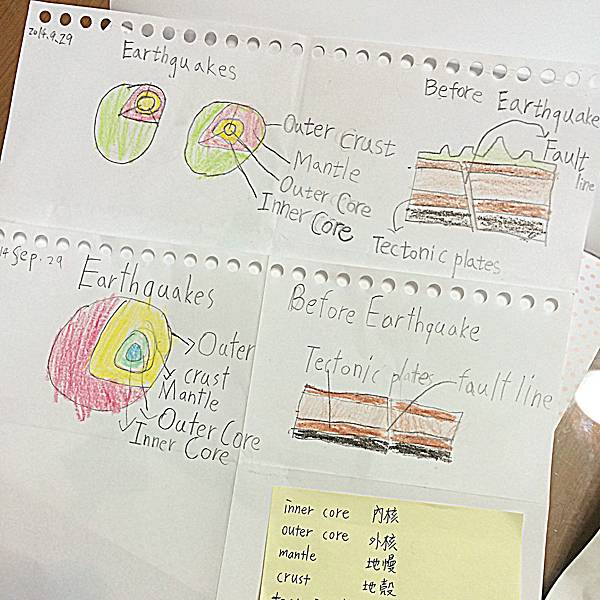 2014.9.29
Earthquakes
Outer crust
Mantle
Outer Core
Inner Core
Before Earthquake
Fault
line
Tectonic plates
14 Sep. 29
Earthquakes
Outer
crust
Mantle
Outer Core
Inner Core
Before Earthquake
Tectonic plates
fault line
inner core 內核
outer core 外核
mantle 地慢
crust 地殼